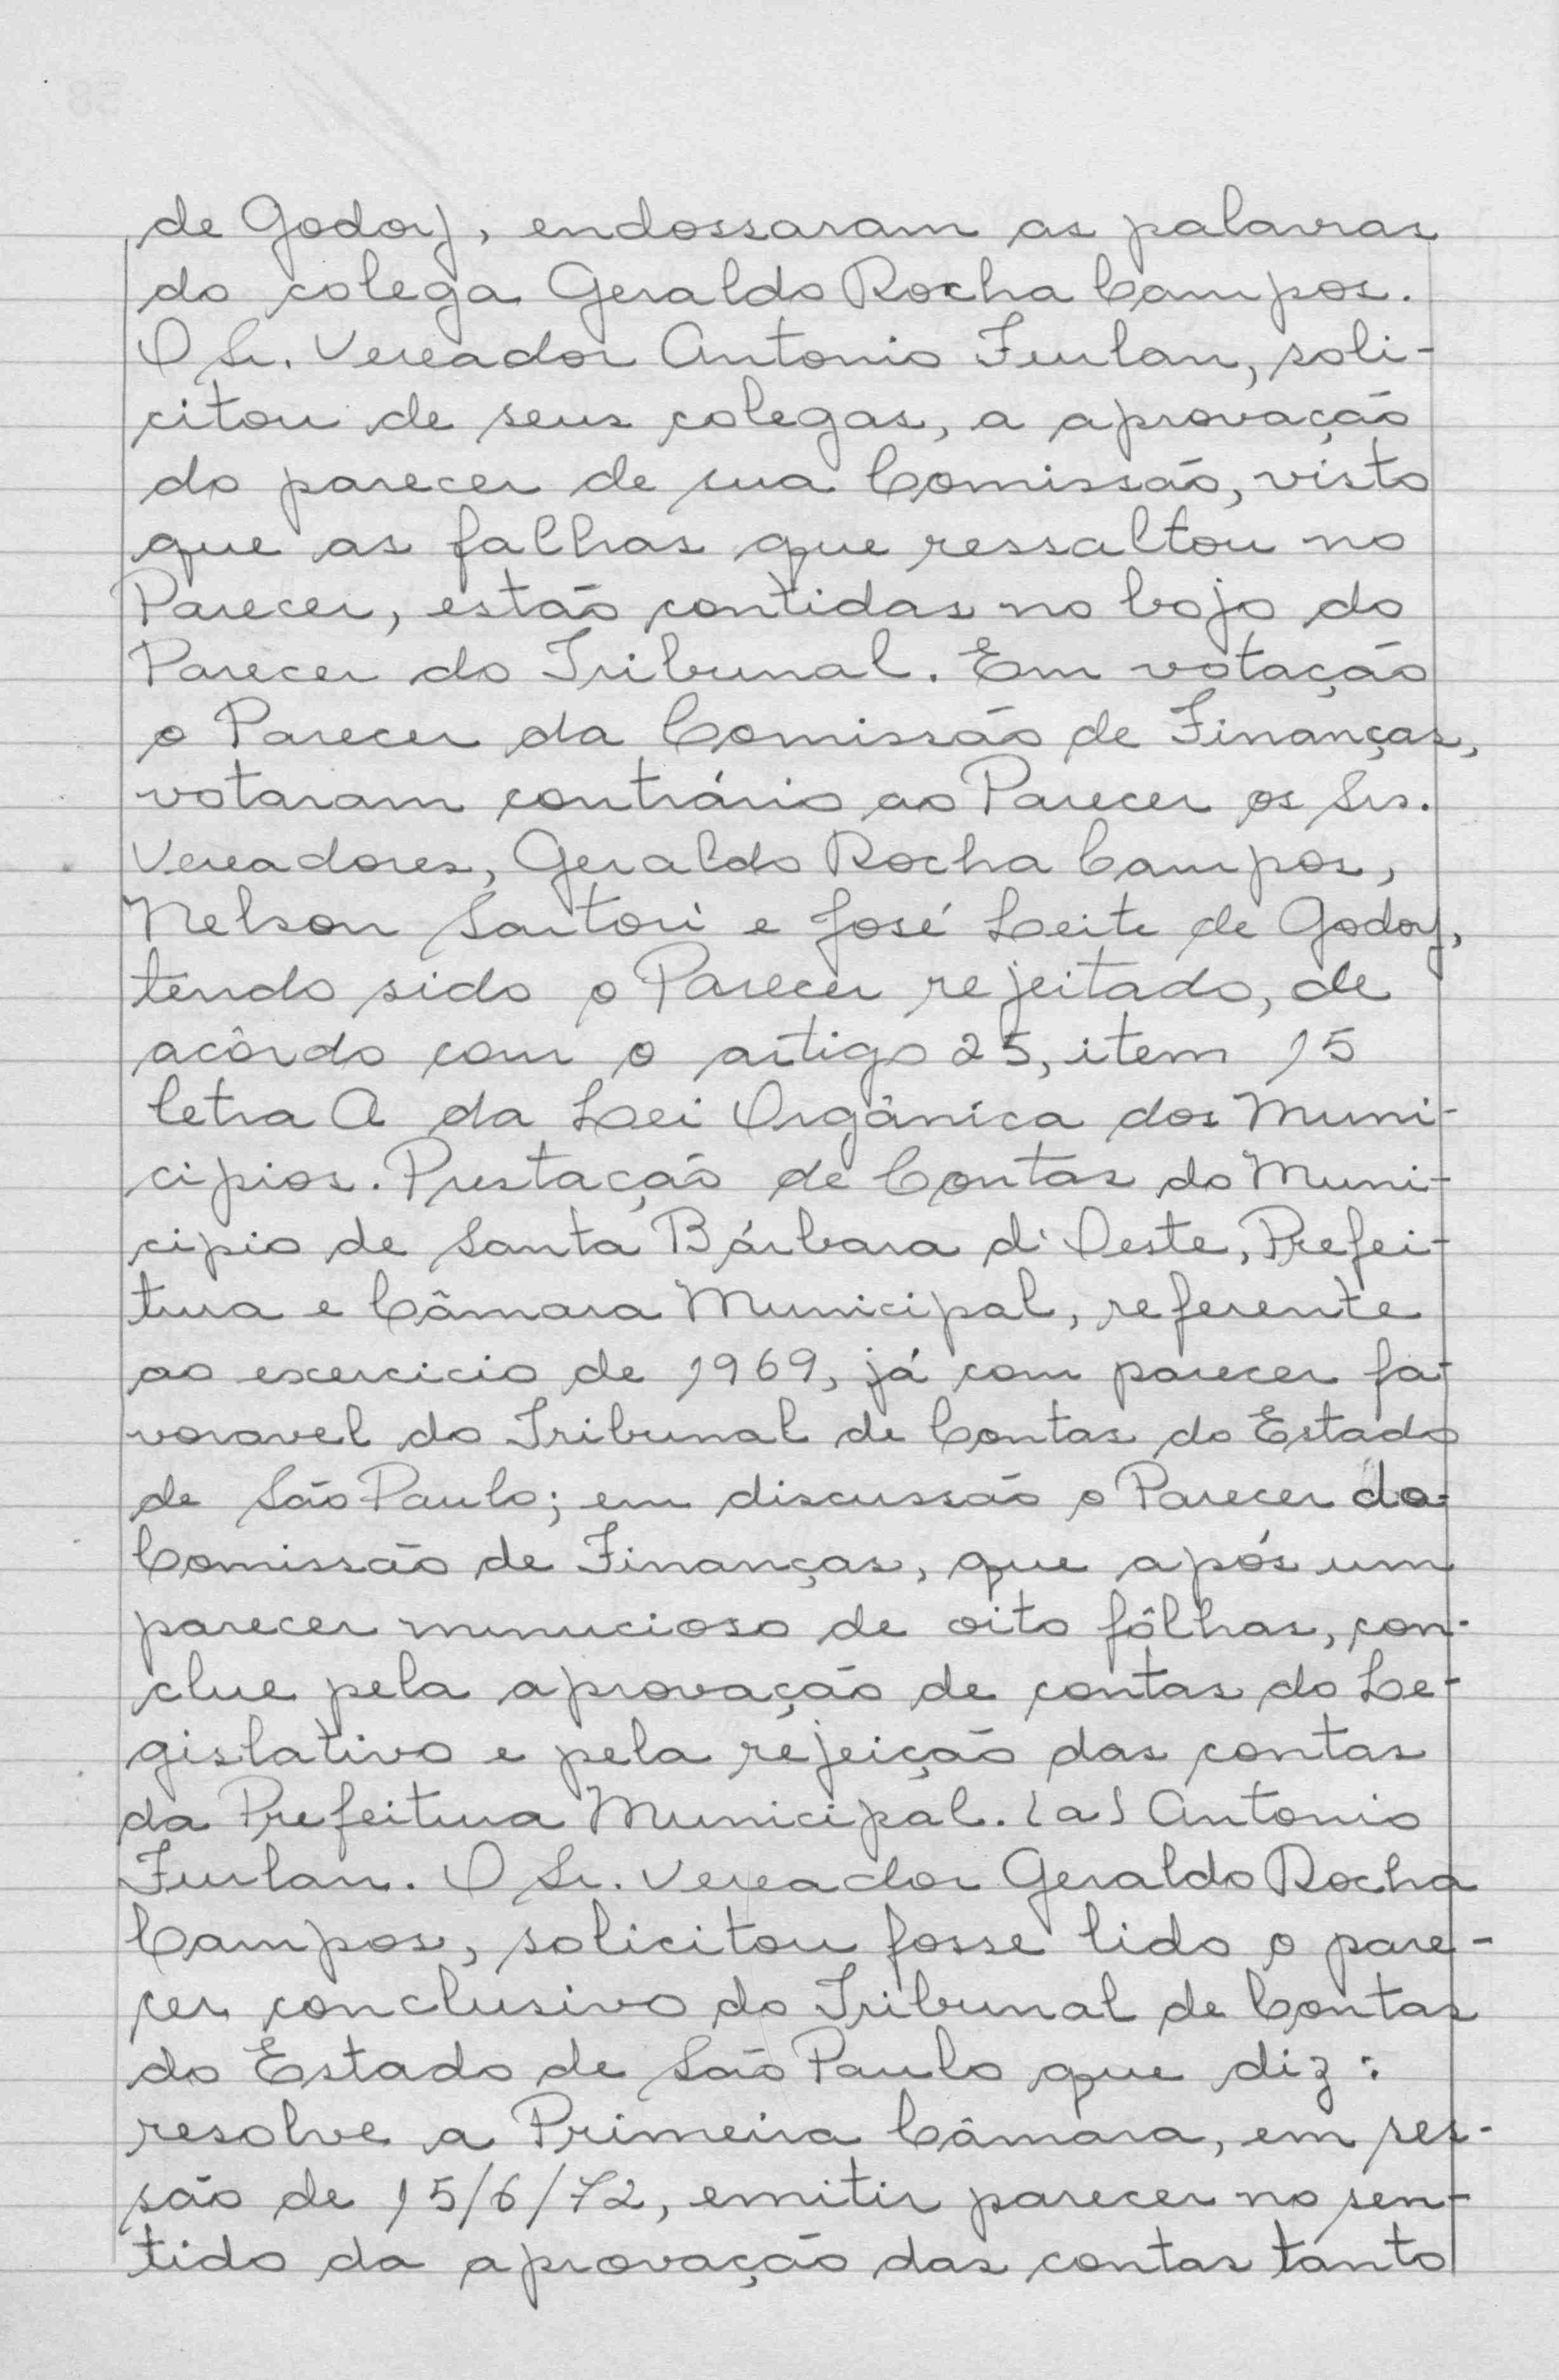 de Godoy, endossaram as palavras
do colega Geraldo Rocha Campos.
O Sr. Vereador Antonio Furlan, soli-
citou de seus colegas, a aprovação
do parecer de sua Comissão, visto
que as falhas que ressaltou no
Parecer, estão contidas no bojo do
Parecer do Tribunal. Em votação
o Parecer da Comissão de Finanças,
votaram contrário ao Parecer os Srs.
Vereadores, Geraldo Rocha Campos,
Nelson Sartori e José Leite de Godoy,
tendo sido o Parecer rejeitado, de
acôrdo com o artigo 25, item 15
letra A da Lei Orgânica dos Muni-
cipios. Prestação de Contas do Muni-
cipio de Santa Bárbara d'Oeste, Prefei-
tura e Câmara Municipal, referente
ao exercicio de 1969, já com parecer fa-
voravel do Tribunal de Contas do Estado
de São Paulo; em discussão o Parecer da
Comissão de Finanças, que após um
parecer minucioso de oito fôlhas, con-
clue pela aprovação de contas do Le-
gislativo e pela rejeição das contas
da Prefeitura Municipal. (a) Antonio
Furlan. O Sr. Vereador Geraldo Rocha
Campos, solicitou fosse lido o pare-
cer conclusivo do Tribunal de Contas
do Estado de São Paulo que diz:
resolve a Primeira Câmara, em ses-
são de 15/6/72, emitir parecer no sen-
tido da aprovação das contas tanto